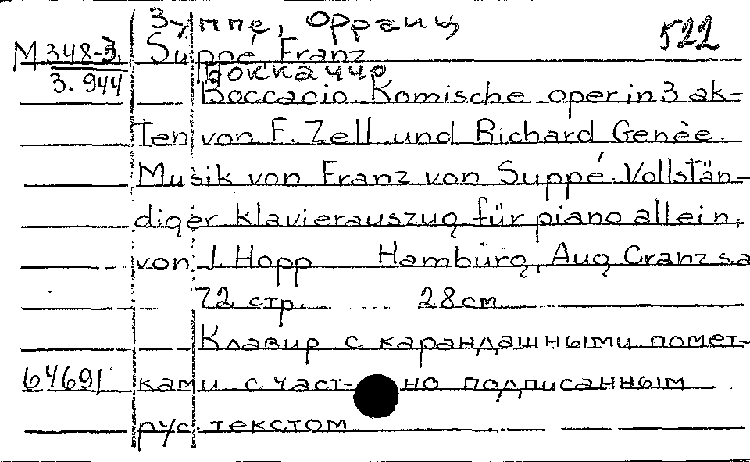 Зуппе, Орранц
522
М 348-3 Suppé Franz
3.944 Боккаччо
Boccacio. Komische oper in 3 ak-
ten von F. Zell und Richard Genèe.
Musik von Franz von Suppé. Vollstän-
diger klavierauszug für piano allein,
von J. Hopp Hamburg, Aug Cranz sa
72 стр. ... 28 cm
Клавир с карандашными помет-
64691 ками с част- но подписанным
рус текстом